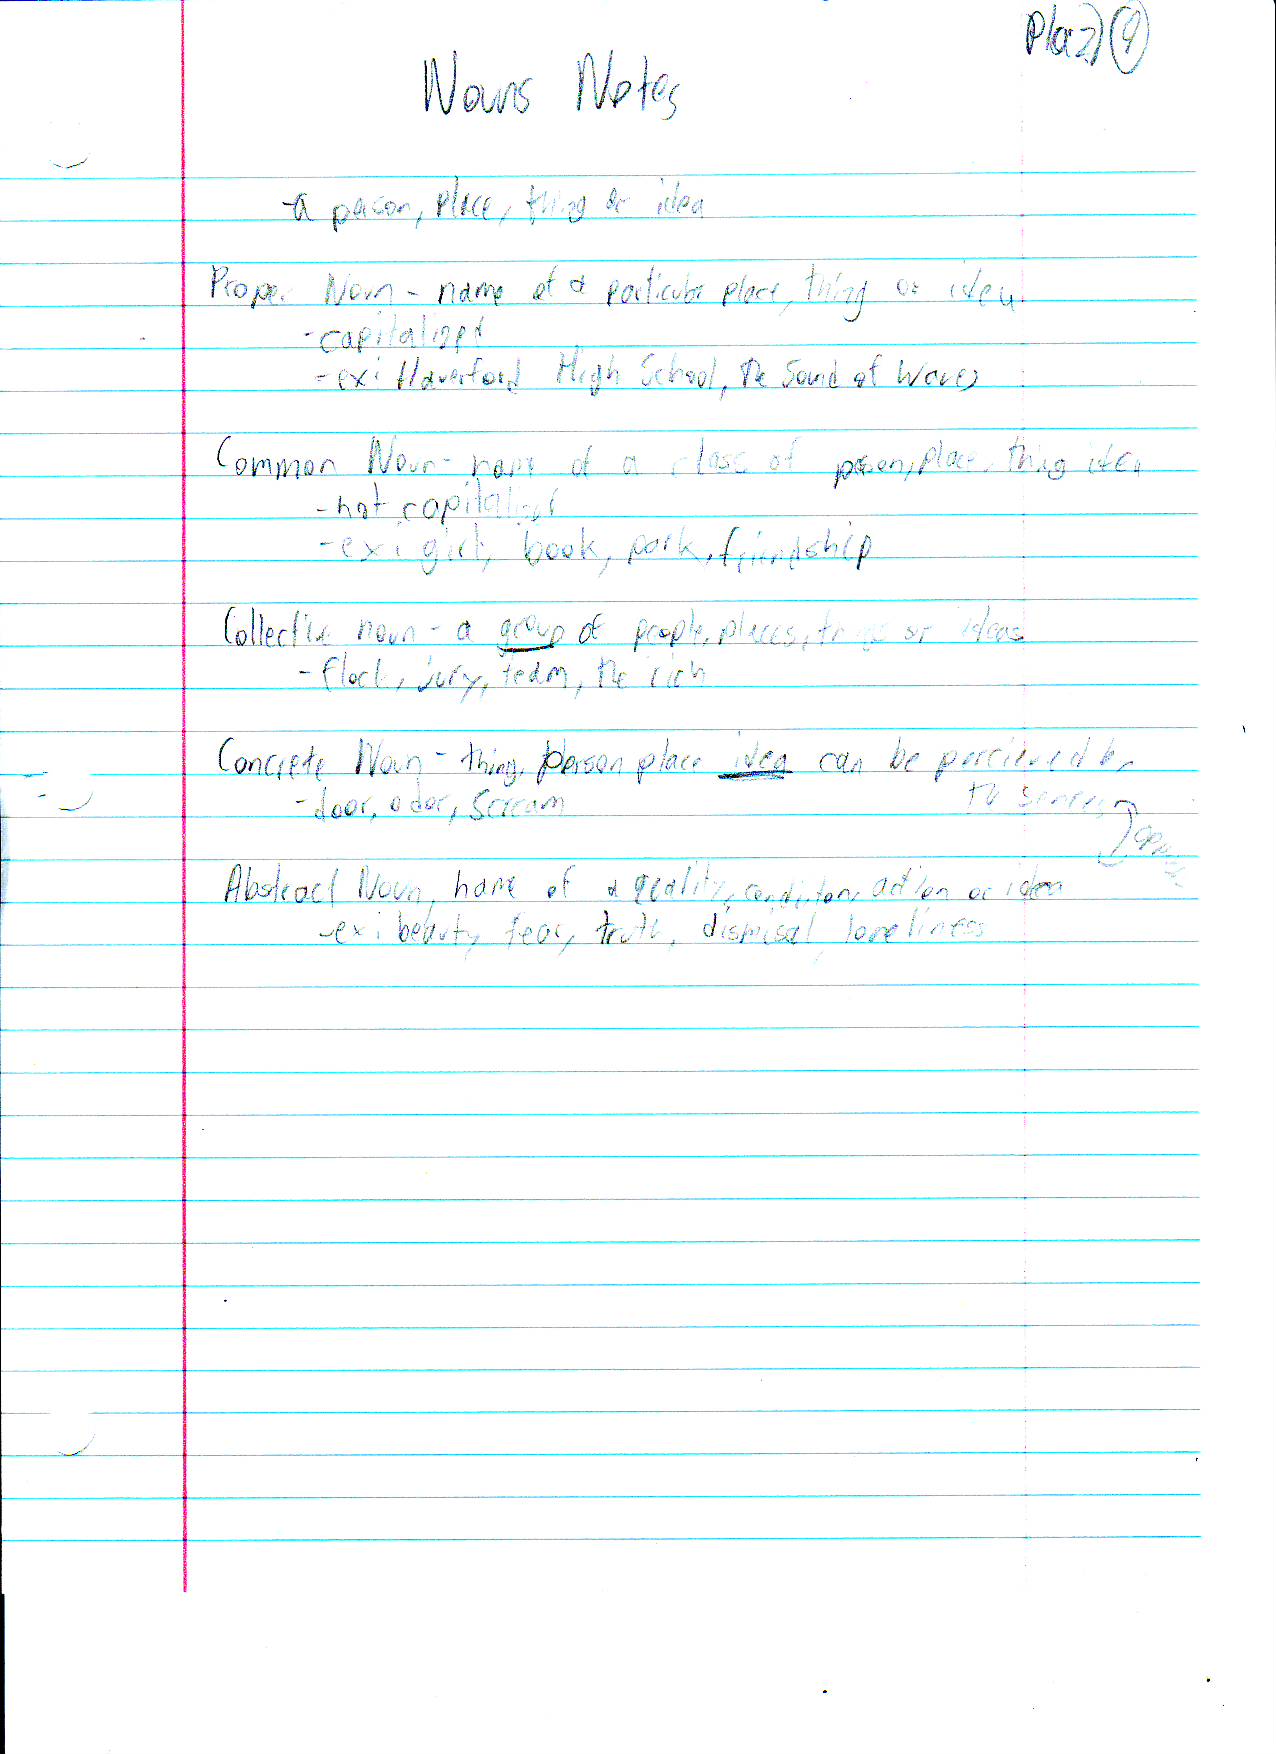 Nouns Notes
-a person, place, thing or idea
Proper Noun - name of a particular place, thing or idea
-capitalized
-ex: Haverford High School, The Sound of Waves
Common Noun - name of a class of person, place, thing idea
-not capitalized
-ex: girl, book, park, friendship
Collective noun - a group of people, places, things or ideas
- flock, jury, team, the rich
Concrete Noun - thing, person place idea can be percieved by
the senses
-door, odor, scream
Abstract Noun, name of a quality, condition, action or idea
-ex: beauty, fear, truth, dismissal, loneliness